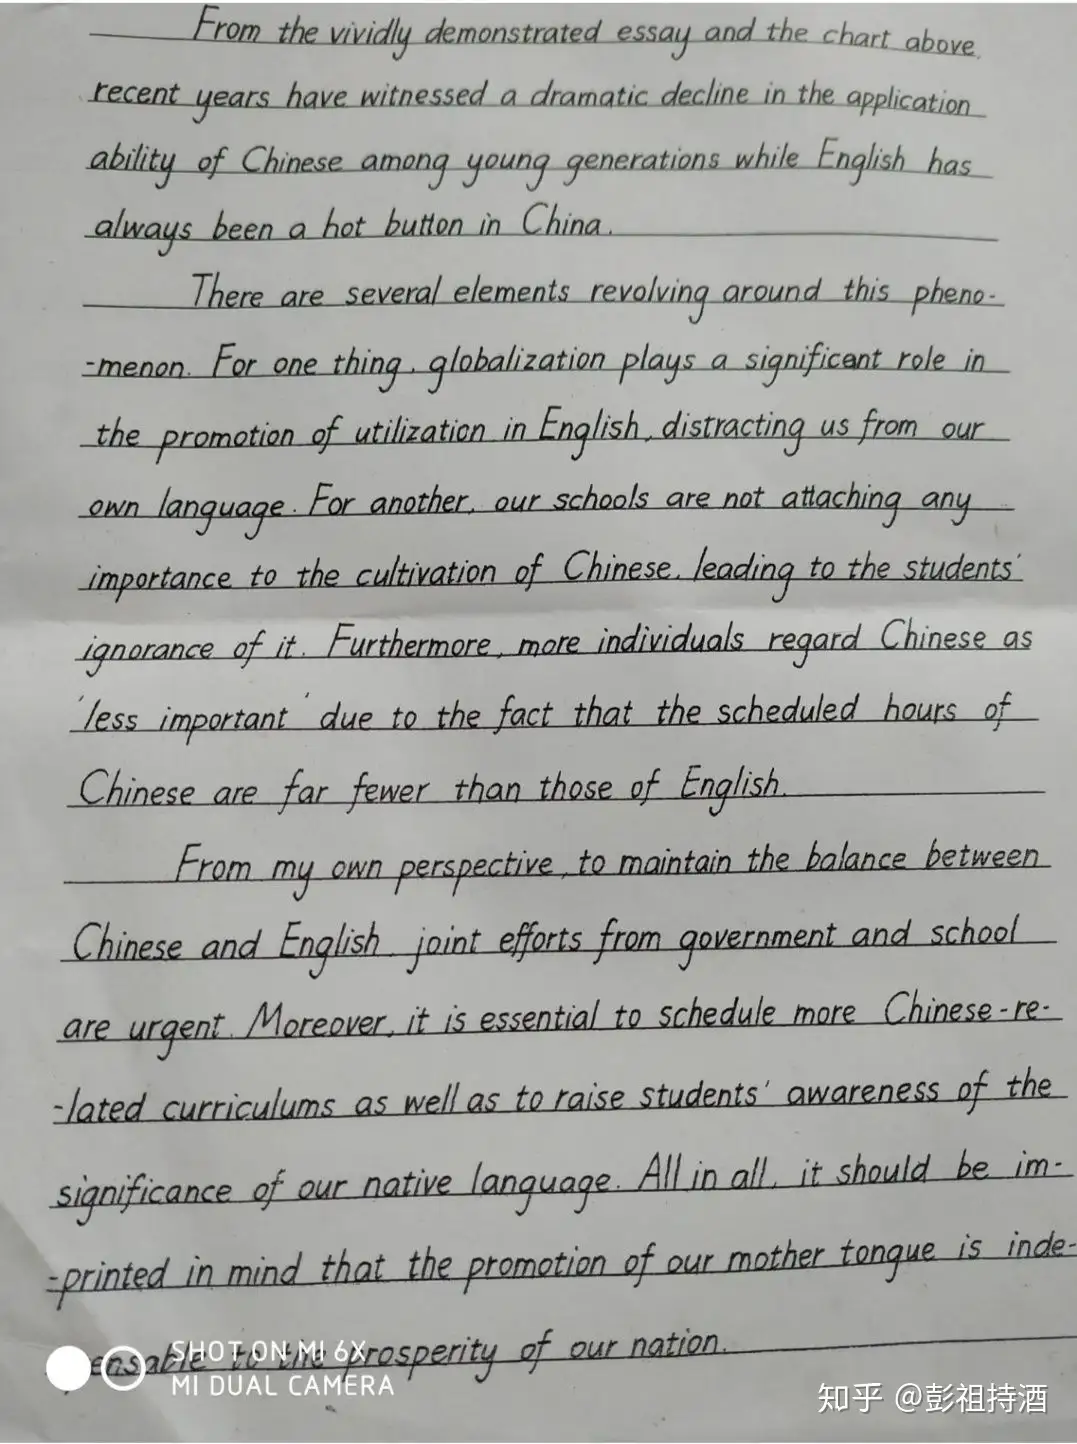 From the vividly demonstrated essay and the chart above,
recent years have witnessed a dramatic decline in the application
ability of Chinese among young generations while English has
always been a hot button in China.
There are several elements revolving around this pheno-
-menon. For one thing, globalization plays a significant role in
the promotion of utilization in English, distracting us from our
own language. For another, our schools are not attaching any
importance to the cultivation of Chinese, leading to the students'
ignorance of it. Furthermore, more individuals regard Chinese as
'less important' due to the fact that the scheduled hours of
Chinese are far fewer than those of English.
From my own perspective, to maintain the balance between
Chinese and English, joint efforts from government and school
are urgent. Moreover, it is essential to schedule more Chinese-re-
-lated curriculums as well as to raise students' awareness of the
significance of our native language. All in all, it should be im-
-printed in mind that the promotion of our mother tongue is inde-
pensable to the prosperity of our nation.
SHOT ON MI 6X
MI DUAL CAMERA
知乎 @彭祖持酒